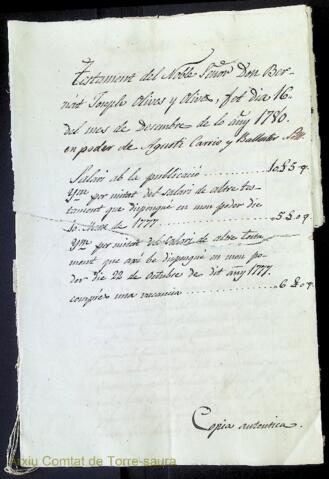 Testament del Noble Señor Don Ber-
nart Joseph Olives y Olives, fet dia 16
del mes de Desembre de lo añy 1780
en poder de Agusti Carrio y Ballester
Salari ab la publicació ........ 10 £ 5 ß 9
Ym per mitat del salari de altre tes-
tament que dispongué en mon poder die
10 1777 ........ 5 £ 0 9
Ym per mitat del Salari de altre testa
ment que axi be dispongué en mon po-
der die 22 de octubre de dit añy 1777.
comprés una vacancia ........ 6 £ 0 9
Copia autentica.
Arxiu Comtat de Torre-saura